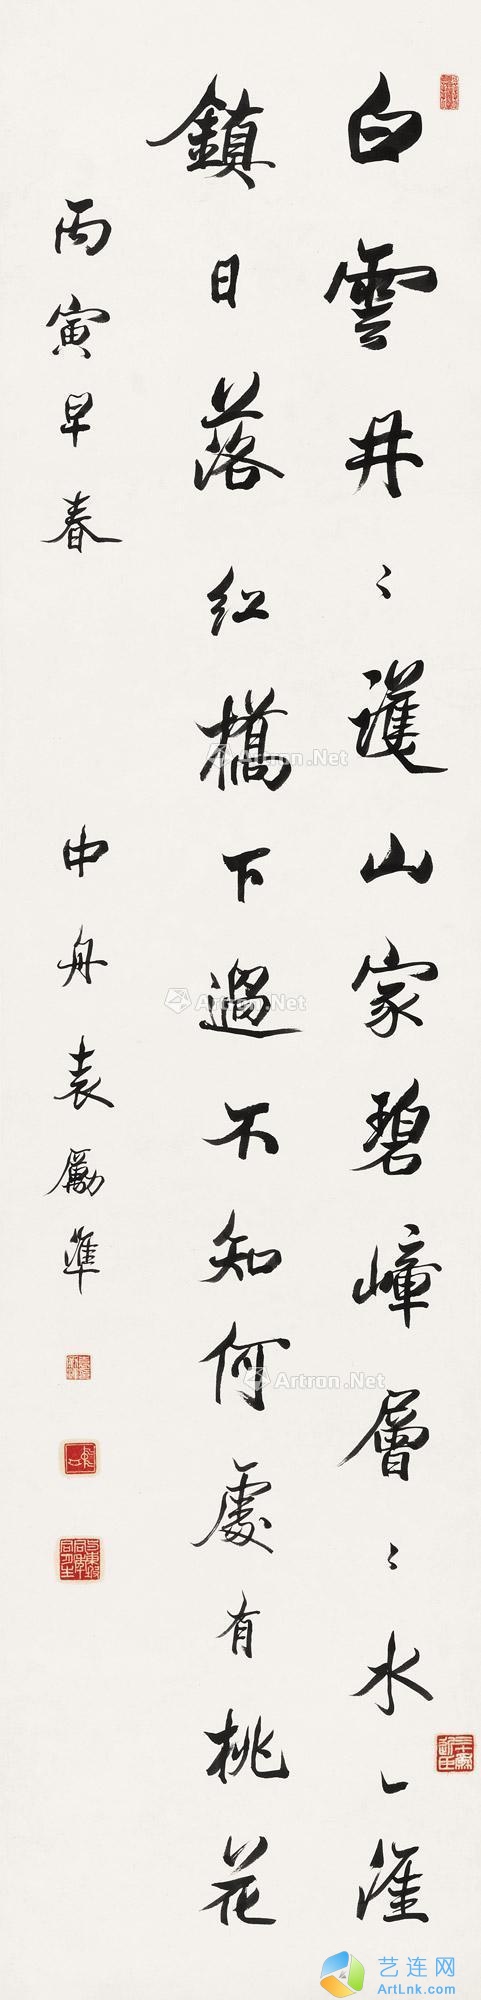 白雲冉〻護山家碧嶂層〻水一涯
鎮日落紅橋下過不知何處有桃花
丙寅早春
中舟袁勵準
Artron.Net
Artron.Net
Artron.Net
艺连网
ArtLnk.com